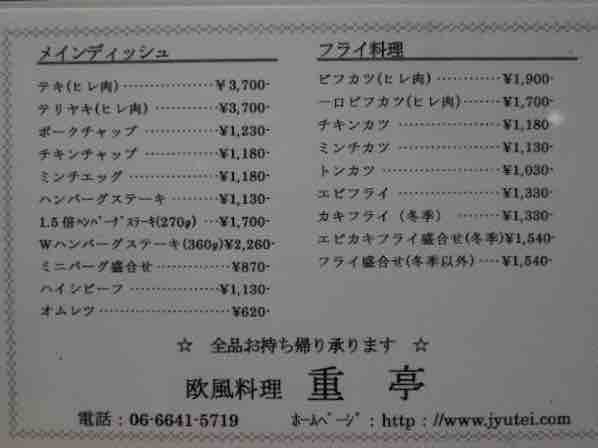 メインディッシュ
テキ(ヒレ肉) ················ ¥3,700-
テリヤキ(ヒレ肉) ··········· ¥3,700-
ポークチャップ ············ ¥1,230-
チキンチャップ ············ ¥1,180-
ミンチエッグ ··············· ¥1,180-
ハンバーグステーキ ······· ¥1,130-
1.5倍ﾊﾝﾊﾞｰｸﾞｽﾃｰｷ(270g) ··· ¥1,700-
Wハンバーグステーキ(360g)¥2,260-
ミニバーグ盛合せ ············ ¥870-
ハイシビーフ ··············· ¥1,130-
オムレツ ······················ ¥620-
フライ料理
ビフカツ(ヒレ肉) ············ ¥1,900-
一口ビフカツ(ヒレ肉)······· ¥1,700-
チキンカツ ·················· ¥1,180
ミンチカツ ·················· ¥1,130-
トンカツ ····················· ¥1,030-
エビフライ ·················· ¥1,330-
カキフライ（冬季） ······· ¥1,330-
エビカキフライ盛合せ(冬季)¥1,540-
フライ盛合せ(冬季以外) ···· ¥1,540-
☆ 全品お持ち帰り承ります ☆
欧風料理 重亭
電話：06-6641-5719 ﾎｰﾑﾍﾟｰｼﾞ：http：//www.jyutei.com/